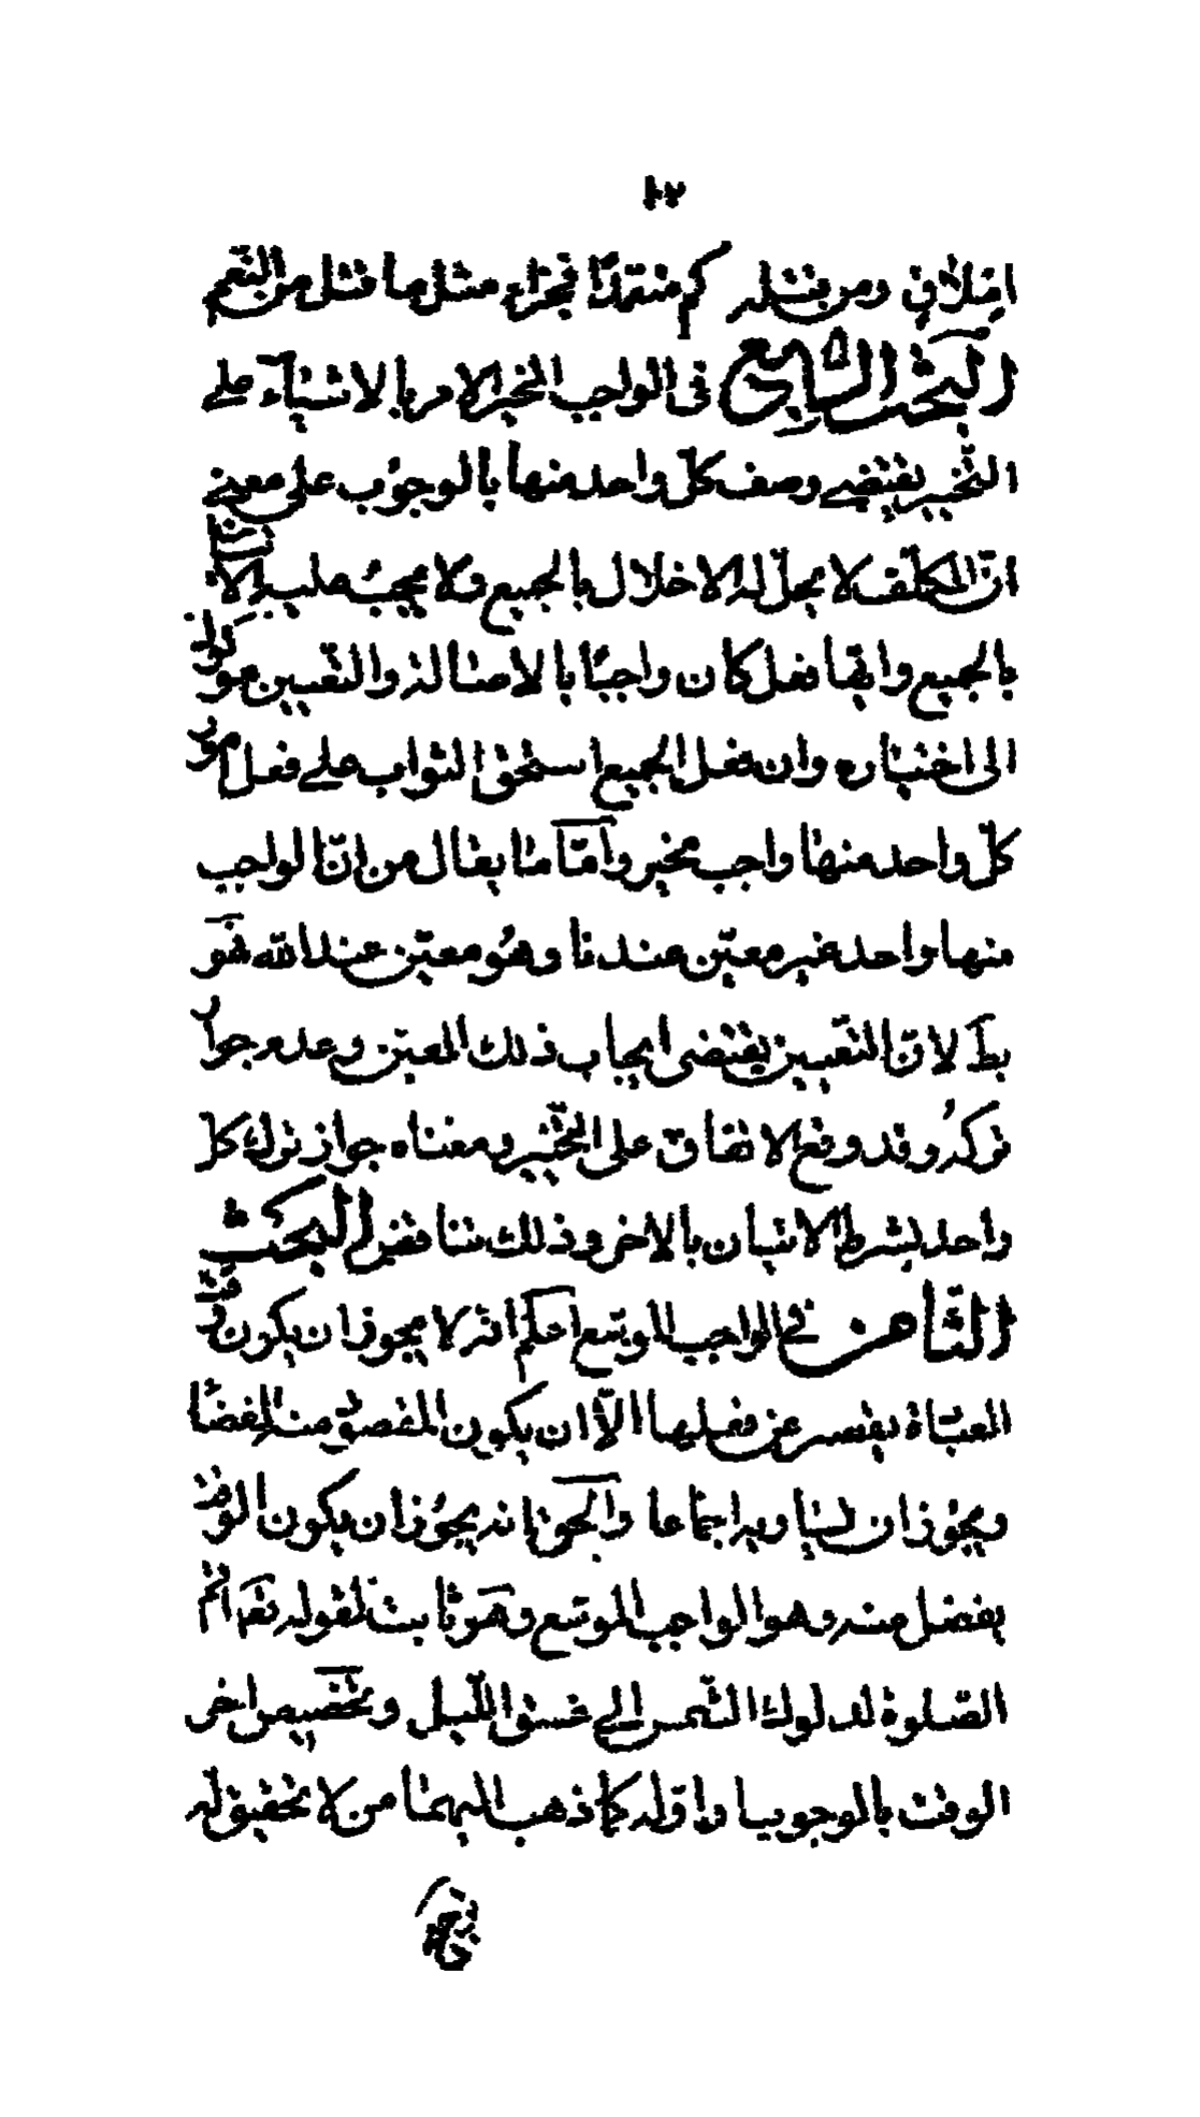 املاق ومن قتله منكم متعمدا فجزاء مثل ما قتل من النعم
البحث السابع فى الواجب المخير الامر بالاشياء على
التخيير يقتضى وصف كل واحد منها بالوجوب على معنى
ان المكلف لا يحل له الاخلال بالجميع ولا يجب عليه الاتيان
بالجميع وايها فعل كان واجبًا بالاصالة والتعيين موكول
الى اختياره وان فعل الجميع استحق الثواب على فعل امور
كل واحد منها واجب مخير وامّا ما يقال من انّ الواجب
منها واحد غير معيّن عندنا وهو معيّن عند الله فهو
بط لانّ التعيين يقتضى ايجاب ذلك المعيّن وعدم جواز
تركه وقد وقع الاتفاق على التخيير ومعناه جواز ترك كل
واحد بشرط الاتيان بالاخر وذلك تناقض البحث
الثامن فى الواجب الموسع اعلم انه لا يجوز ان يكون وقت
العبادة يقصر عن فعلها الّا ان يكون المقصود منه القضاء
ويجوز ان يساويه اجماعا والحق انه يجوز ان يكون الوقت
يفضل منه وهو الواجب الموسع وهو ثابت لقوله تعه اقم
الصلوة لدلوك الشمس الى غسق الليل وتخصيص اخر
الوقت بالوجوب او اوله كما ذهب اليهما من لا تحقيق له